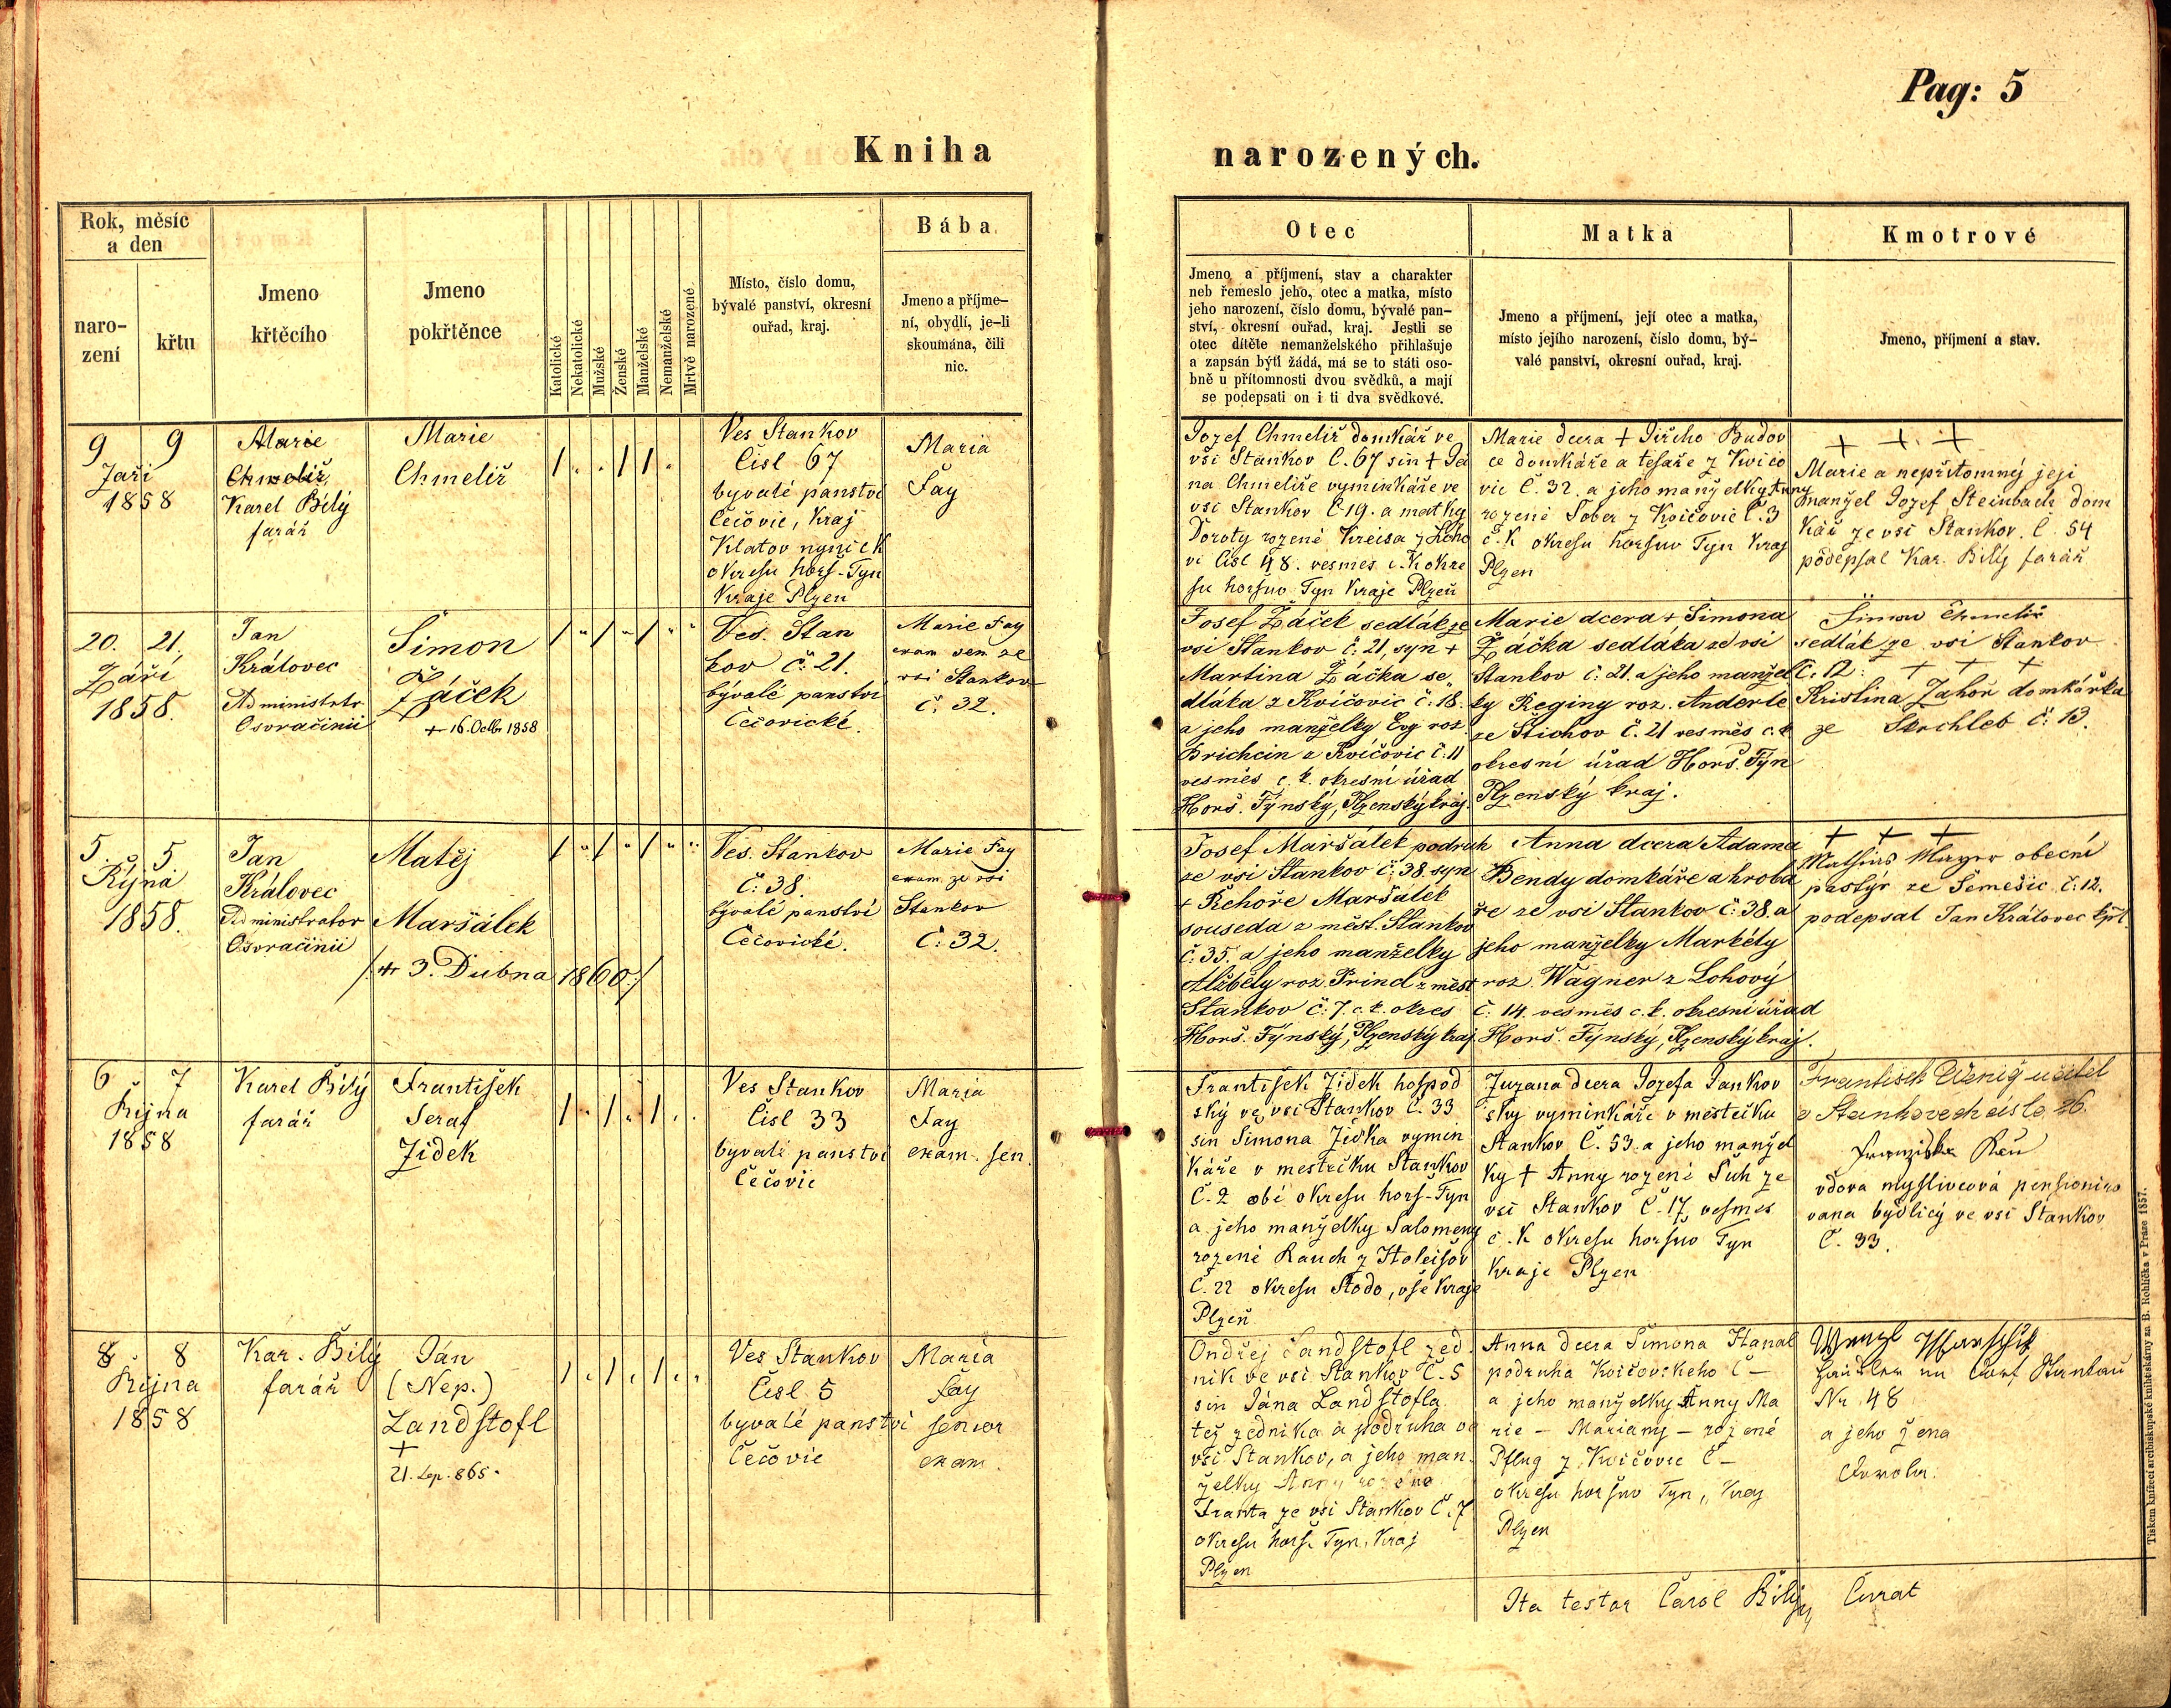 Pag: 5
Kniha
narozených.
Rok, měsíc
a den
naro-
zení
křtu
Jmeno
křtěcího
Jmeno
pokřtěnce
Katolické
Nekatolické
Mužské
Ženské
Manželské
Nemanželské
Mrtvě narozené
Místo, číslo domu,
bývalé panství, okresní
ouřad, kraj.
Bába
Jmeno a příjme-
ní, obydlí, je-li
skoumána, čili
nic.
Otec
Jmeno a příjmení, stav a charakter
neb řemeslo jeho, otec a matka, místo
jeho narození, číslo domu, bývalé pan-
ství, okresní ouřad, kraj. Jestli se
otec dítěte nemanželského přihlašuje
a zapsán býti žádá, má se to státi oso-
bně u přítomnosti dvou svědků, a mají
se podepsati on i ti dva svědkové.
Matka
Jmeno a příjmení, její otec a matka,
místo jejího narození, číslo domu, bý-
valé panství, okresní ouřad, kraj.
Kmotrové
Jmeno, příjmení a stav.
9 9
Září
1858
Marie
Chmelíř
Karel Bílý
farář
Marie
Chmelíř
Ves Stankov
Čisl 67
byvalé panství
Čečovic, kraj
Klatov nyní c k
okresu horš-Tyn
Kraje Plzen
Maria
Fay
Jozef Chmelíř domkář ve
vsi Stankov Č. 67 sin + Já
na Chmelíře vyminkáře ve
vsi Stankov Č 19. a matky
Doroty rozené Kreisa z Loho
vi Čisl 48. vesmes c. k okre
su horšuv Tyn Kraje Plzeň
Marie dcera + Jiřího Budov
ce domkáře a tesaře z Kvičo
vic Č. 32. a jeho manželky Anny
rozené Sober z Kvičovic Č. 3
c. k okresu horšuv Tyn Kraj
Plzen
+ + +
Marie a nepřítomný její
manžel Jozef Steinbach dom
kář ze vsi Stankov. Č 54
podepsal Kar. Bílý farář
20. 21.
Září
1858.
Jan
Královec
Administrtr
Osvračínii
Šimon
Žáček
+ 16. Octbr 1858
Ves. Stan
kov č. 21.
bývalé panství
Čečovické.
Marie Fay
exam sen ze
vsi Stankov
č. 32.
Josef Žáček sedlák ze
vsi Stankov č. 21, syn +
Martina Žáčka se-
dláka z Kvíčovic č. 18.
a jeho manželky Evy roz.
Brichcin z Kvíčovic č. 11
vesměs c. k. okresní úřad
Horš. Týnský, Plzenský kraj.
Marie dcera + Šimona
Žáčka sedláka ze vsi
Stankov č. 21. a jeho manžel
ky Reginy roz. Anderle
ze Štichov č. 21 vesměs c. k
okresní úřad Horš. Týn
Plzenský kraj.
Šimon Chmelíř
sedlák ze vsi Stankov
č. 12 + + +
Kristina Zahoř domkářka
ze Skrchleb č. 13.
5. 5
Října
1858.
Jan
Královec
Administrator
Osvračínii
Matěj
Maršálek
/+ 3. Dubna 1860/
Ves. Stankov
č. 38.
bývalé panství
Čečovické.
Marie Fay
exam. ze vsi
Stankov
č. 32.
Josef Maršálek podruh
ze vsi Stankov č. 38. syn
+ Řehoře Maršálek
souseda z měst. Stankov
č. 35. a jeho manželky
Alžběty roz. Prindl z měst
Stankov č. 7. c. k. okres
Horš. Týnský, Plzenský kraj.
Anna dcera Adama
Bendy domkáře a hrobá
ře ze vsi Stankov č. 38. a
jeho manželky Markéty
roz. Wagner z Lohový
č. 14. vesměs c. k. okresní úřad
Horš. Týnský, Plzenský kraj.
+ + +
Mathias Mayer obecní
pastýř ze Semešic č. 12.
podepsal Jan Královec
6 7
Října
1858
Karel Bílý
farář
František
Seraf
Zídek
Ves Stankov
Čisl 33
byvalé panství
Čečovic
Maria
Fay
exam. sen.
František Zídek hospod
ský ve vsi Stankov Č. 33
sin Šimona Zídka vymin
káře v mestečku Stankov
Č. 2 obí okresu horš-Tyn
a jeho manželky Salomeny
rozené Rauch z Holeišov
Č. 22 okresu Stodo, vše kraje
Plzeň
Zuzana dcera Jozefa Jankov
sky vyminkáře v mestečku
Stankov Č. 53 a jeho manžel
ky + Anny rozené Šuh ze
vsi Stankov Č. 17, vesmes
c. k okresu horšuv Tyn
Kraje Plzen
Frantisek Wenig učitel
v Stankovech čislo 26.
Franziska
vdova myslivcová pensioniro
vana bydlicý ve vsi Stankov
Č. 33.
8. 8
Října
1858
Kar. Bílý
farář
Ján
(Nep.)
Landstofl
+
21. Sep. 865.
Ves Stankov
Čisl 5
byvalé panství
Čečovic
Maria
Fay
senior
exam.
Ondřej Landstofl zed
nik ve vsi Stankov Č. 5
sin Jána Landstofla
též zednika a podruha ve
vsi Stankov, a jeho man
želky Anny rozené
Franta ze vsi Stankov Č. 7
okresu horš. Tyn, Kraj
Plzen
Anna dcera Šimona Hanal
podruha Kvičovskeho Č -
a jeho manželky Anny Ma
rie - Mariany - rozené
Pflug z Kvičovic Č -
okresu horšuv Tyn, Kraj
Plzen
Wenzl
Händler im Dorf Stankau
Nr 48
a jeho žena
Ita testor Carol Bílý, Curat
Tiskem knížecí arcibiskupské knihtiskárny za B. Rohlíčka v Praze 1857.